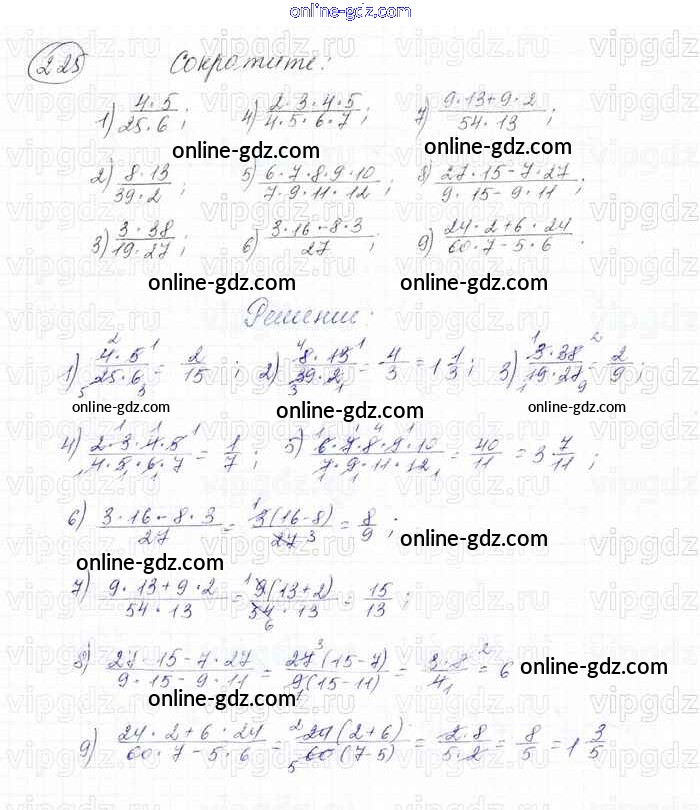 online-gdz.com
225 Сократите:
1) 4·5/25·6 ; 4) 2·3·4·5/4·5·6·7 ; 7) 9·13+9·2/54·13 ;
online-gdz.com online-gdz.com
2) 8·13/39·2 ; 5) 6·7·8·9·10/7·9·11·12 ; 8) 27·15-7·27/9·15-9·11 ;
online-gdz.com
3) 3·38/19·27 ; 6) 3·16-8·3/27 ; 9) 24·2+6·24/60·7-5·6 .
online-gdz.com online-gdz.com
Решение:
1) 4·5/25·6 = 2/15 ; 2) 8·13/39·2 = 4/3 = 1 1/3 ; 3) 3·38/19·27 = 2/9 ;
online-gdz.com online-gdz.com online-gdz.com
4) 2·3·4·5/4·5·6·7 = 1/7 ; 5) 6·7·8·9·10/7·9·11·12 = 40/11 = 3 7/11 ;
6) 3·16-8·3/27 = 3(16-8)/27 = 8/9 ; online-gdz.com
online-gdz.com
7) 9·13+9·2/54·13 = 9(13+2)/54·13 = 15/13 ;
8) 27·15-7·27/9·15-9·11 = 27(15-7)/9(15-11) = 3·8/4 = 6 online-gdz.com
online-gdz.com
9) 24·2+6·24/60·7-5·6 = 24(2+6)/60(7-5) = 2·8/5·2 = 8/5 = 1 3/5